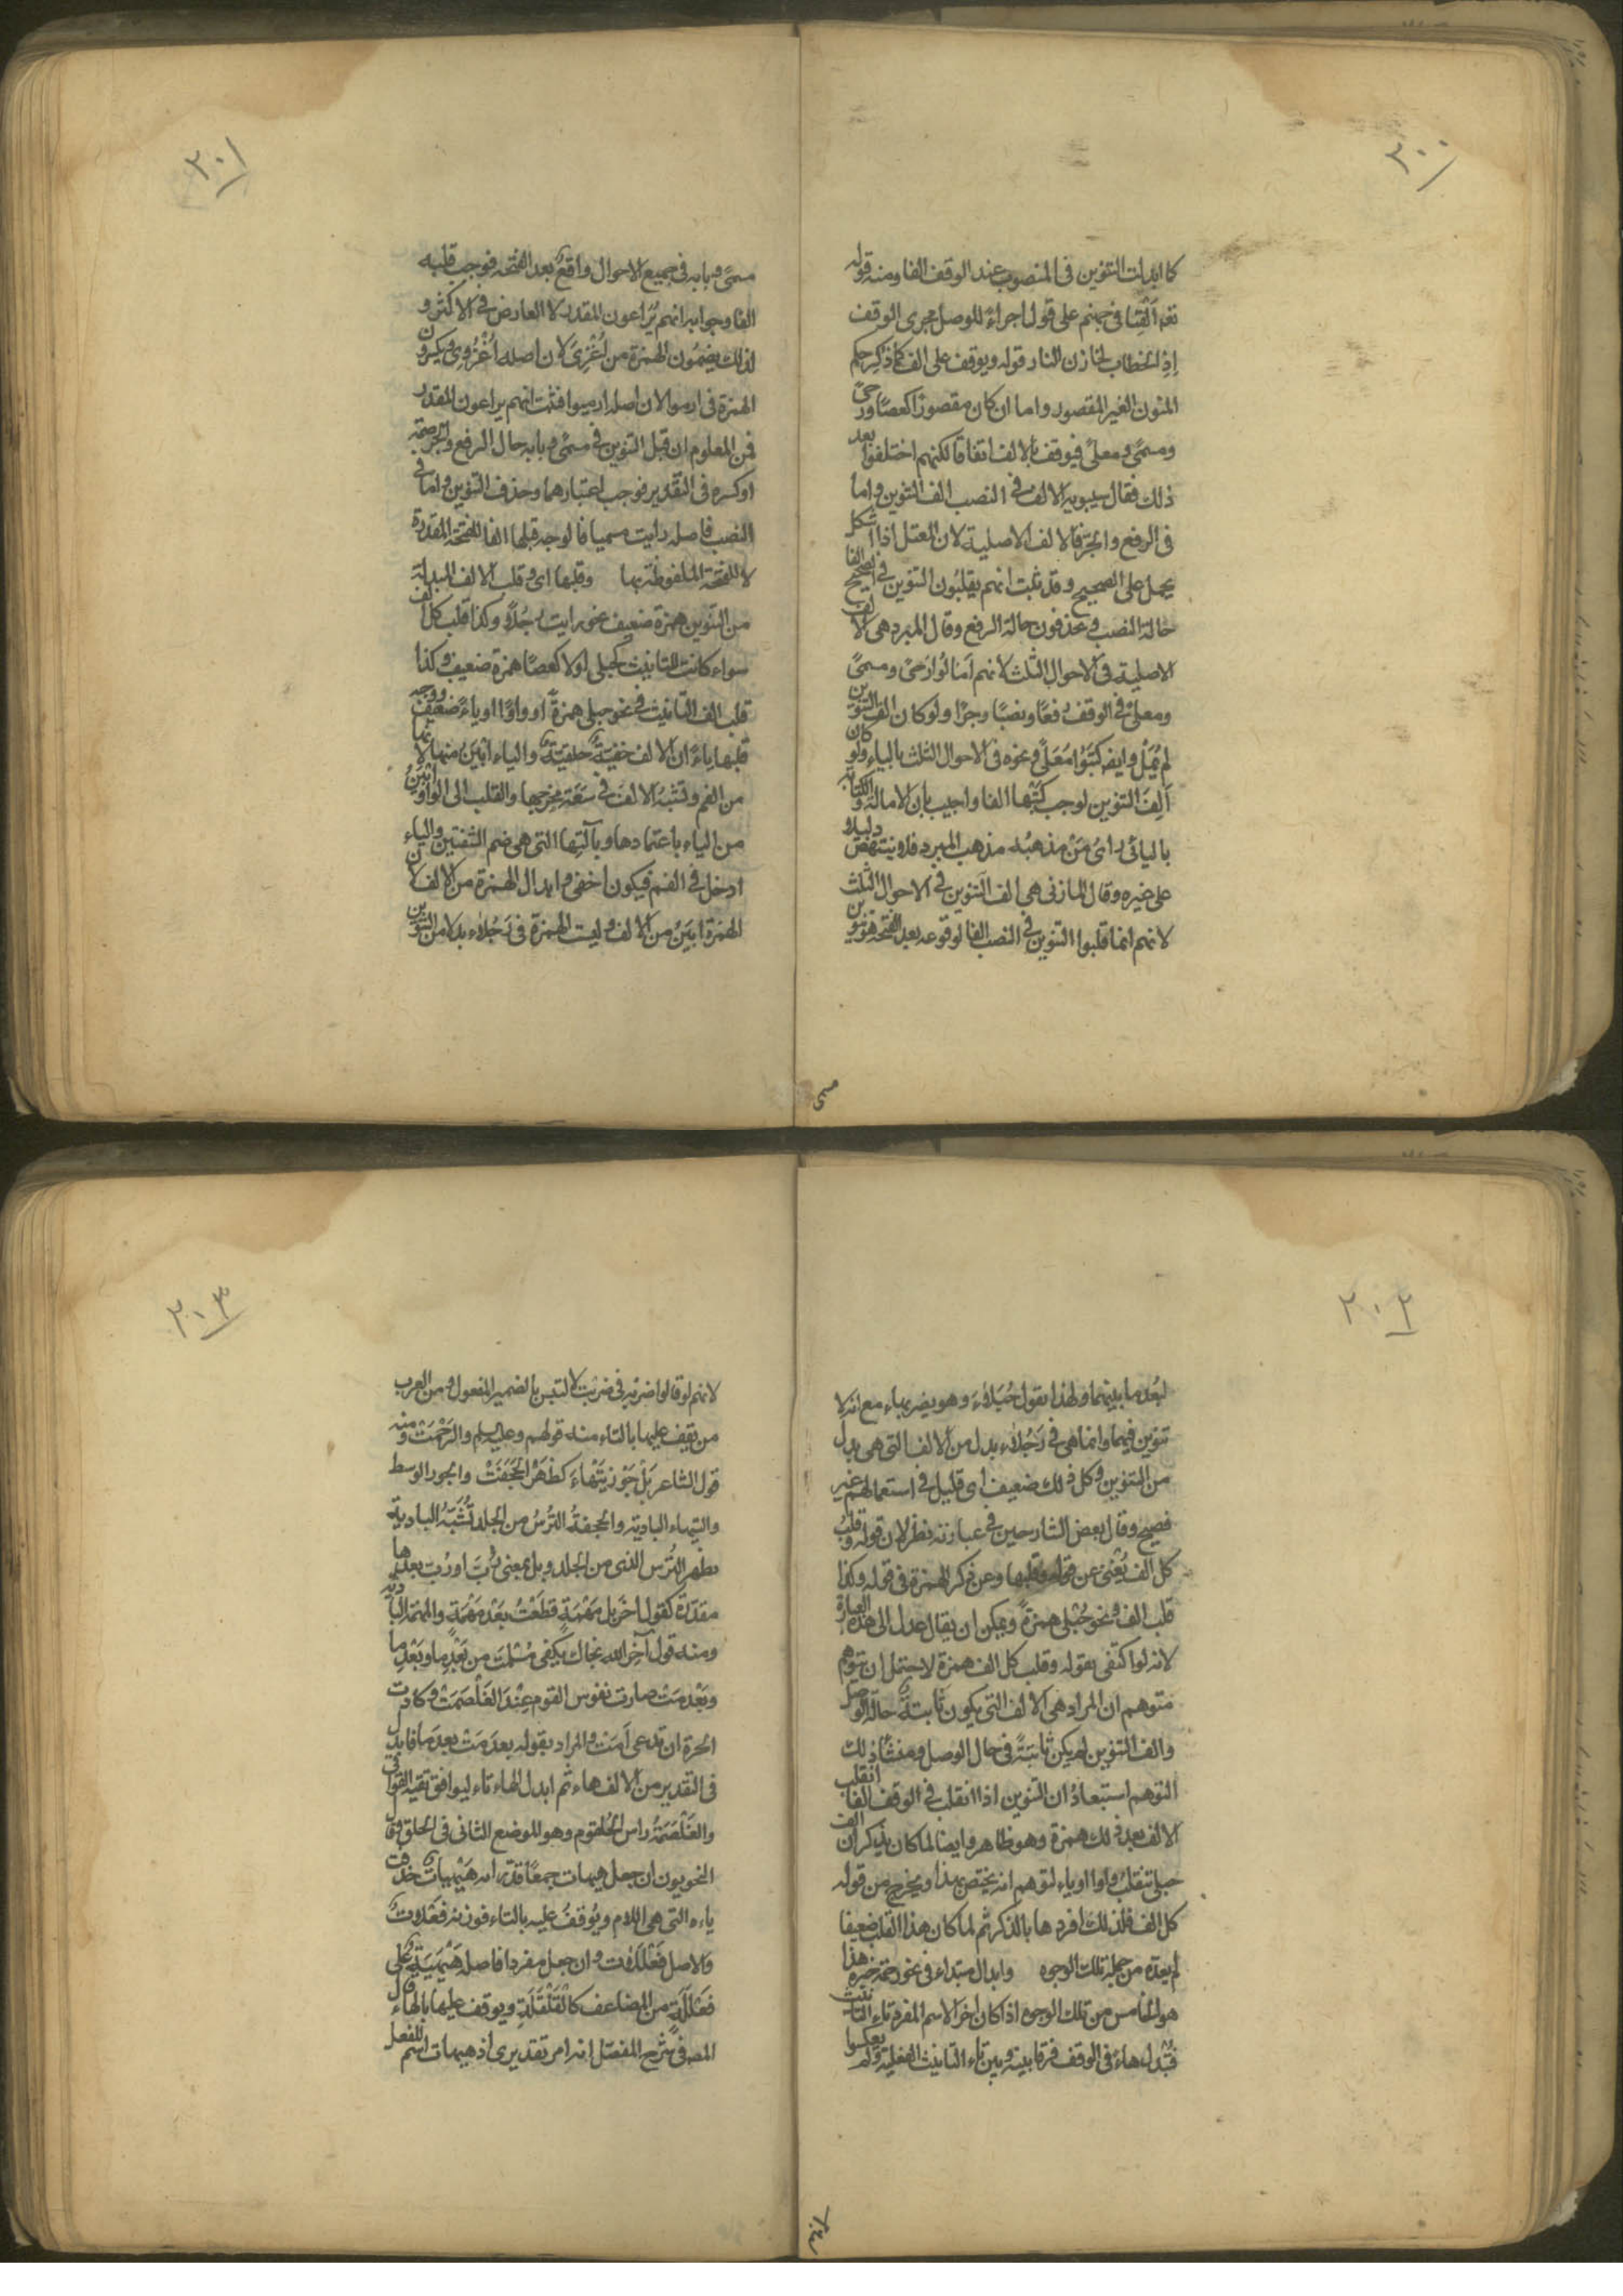 ٣٠٠
كما ابدلت التنوين فى المنصوب عند الوقف الفا ومنه قوله
تعه اَلْقِيَا فى جهنم على قول اجراءً للوصل مجرى الوقف
إذِ الخطاب لخازن النار قوله ويوقف على الف كما ذكر حكم
المنون الغير المقصور واما ان كان مقصورًا كعصًا ورحىً
ومسمًى ومعلىً فيوقف بالالف اتفاقا لكنهم اختلفوا بعد
ذلك فقال سيبويه الالف فى النصب الف التنوين واما
فى الرفع والجرّ فالالف الاصلية لان المعتل اذا اشكل
يحمل على الصحيح وقد ثبت انهم يقلبُون التنوين فى الصحيح الفا
حالة النصب ويحذفون حالة الرفع وقال المبرد هى الالف
الاصلية فى الاحوال الثلث لانهم اَمَالُوا رَحىً ومسمىً
ومعلىً فى الوقف رفعًا ونصبًا وجرًا ولو كان الف التنوين
لم يُمَلْ وايضه كتَبُوا مُعَلًّى ونحوه فى الاحوال الثلث بالياء ولو كان
اَلِفَ التنوين لوجب كَتْبُها الفا واجيب بأن الامالة والكتابة
بالياء راىُ مَنْ مذهبُه مذهب المبرد فلا ينتهض دليلا
على غيره وقال المازنى هى الف التنوين فى الاحوال الثلث
لانهم انما قلبوا التنوين فى النصب الفا لوقوعه بعد الفتحة فتنوين
مسمى
٣٠١
مسمًى وبابه فى جميع الاحوال واقعٌ بعد الفتحة فوجب قلبه
الفًا وجوابه انهم يُرَاعون المقدر لا العارض فى الاكثر و
لذلك يضمُون الهمزة من اُغْزِىَ لان اصله اُغْزُوِى ويكسرون
الهمزة فى ارموا لان اصله ارميوا فثبت انهم يراعون المقدر
فمن المعلوم ان قبل التنوين فى مسمًى وبابه حال الرفع والجر ضمة
او كسرة فى التقدير فوجب اعتبارهما وحذف التنوين واما فى
النصب فاصله رايت مسميا فالوجه قبلها الفا للفتحة المقدرة
لا للفتحة الملفوظة بها وقلبها اى وقلب الالف المبدلة
من التنوين همزة ضعيف نحو رايت رجُلأ وكذا قلب كل الف
سواء كانت للتانيث كحبلى اولا كعصًا همزة ضعيف وكذا
قلب الف التانيث فى نحو حبلى همزةً او واوًا او ياءً ضعيف ووجه
قلبها ياءً ان الالف خفيّةٌ حلقيّةٌ والياء ابْيَنُ منها لانها
من الفم وتشبهُ الالف فى سَعَة مخرجها والقلب الى الواو ابْيَنُ
من الياء باعتمادها وبآلتِها التى هى ضم الشفتين والياء
ادخل فى الفم فيكون اخفى وابدال الهمزة من الالف لان
الهمزة ابيَنُ من الالف وليست الهمزة فى رَجُلأ بدلا من التنوين
٣٠٢
لبُعد ما بينهما ولهذا يقول حُبَلأ وهو يضربهاء مع انه لا
تنوين فيهما وانما هى فى رَجُلأ بدل من الالف التى هى بدل
من التنوين وكل ذلك ضعيف اى قليل فى استعمالهم غير
فصيح وقال بعض الشارحين فى عبارته نظر لان قوله وقلبُ
كل الف يُغْنى عن قوله وقلبها وعن ذكر الهمزة فى قوله وكذا
قلب الف نحو حُبْلى همزةً ويمكن ان يقال عدل الى هذه العبارة
لانه لو اكتفى بقوله وقلب كل الف همزة لاحتمل ان يتوهم
متوهم ان المراد هى الالف التى يكون ثابتةً حالة الوصل
والف التنوين لم يكن ثابتةً فى حال الوصل ومنشأ ذلك
التوهم استبعادُ ان التنوين اذا انقلب فى الوقف الفا انقلب
الالف بعد ذلك همزة وهو ظاهر وايضا لما كان يذكر ان الف
حبلى تنقلبُ واوا او ياء لتوهم انه يختص بهذا ويخرج من قوله
كل الف فلذلك افردها بالذكر ثم لما كان هذا القلب ضعيفا
لم يعدّه من جملة تلك الوجوه وابدال مبتداء فى نحو رحمة خبره هذا
هو الخامس من تلك الوجوه اذا كان اخر الاسم المفرد تاء التانيث
فتبدل هاءً فى الوقف فرقا بينه وبين تاء التانيث الفعلية ولم يعكسوا
٣٠٣
لانهم لو قالوا ضربه فى ضربت لالتبس بالضمير المفعول ومن العرب
من يقف عليها بالتاء منه قولهم وعليه السلم والرَحْمَتْ ومنه
قول الشاعر بَلْ جَوْزِ تَيْهَاءَ كظَهْرِ الحَجَفَتْ والجوز الوسط
والتيهاء البادية والحجفةُ التُرْسُ من الجلد تُشَبَّهُ البادية
بظهر التُرس الذى من الجلد وبل بمعنى رُبّ او رُبّ بعدها
مقدّرة كقول اخر بل مَهْمَهٍ قطَعْتُ بَعْدَ مَهْمَهٍ والمهمة البادية
ومنه قول آخر الله نجاك بكفى مَسْلَمَتْ من بَعْدِ ما وبَعْدِ ما
وبَعْدِ مَتْ صارت نفوس القوم عِنْدَ الغَلْصَمَتْ وكادت
الحرة ان تدعى اَمَتْ والمراد بقوله بعد مَتْ بعد ما فابدل
فى التقدير من الالف هاء ثم ابدل الهاء تاء ليوافق بقية القوافى
والغَلْصَمَةُ راس الحُلقوم وهو الموضع الثانى فى الحلق وقال
النحويون ان جعل هيهات جمعًا قدّر انه هَيْهَيَات حُذفت
ياءه التى هى اللام ويُوقفُ عليه بالتاء فوزنه فَعْلَلَاتٌ
والاصل فَعْلَلَات وان جعل مفردا فاصله هَيْهَيَةٌ على
فَعْلَلَةٍ من المضاعف كالقَلْقَلَةِ ويوقف عليها بالهاء وقال
المصـ فى شرح المفصّل انه امر تقديرى اذ هيهات اسم للفعل